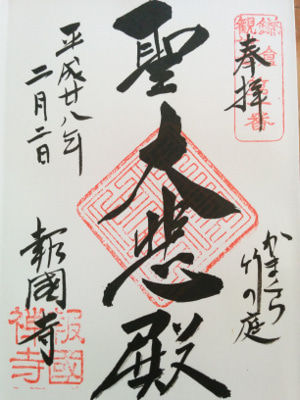 奉拝
かまくら
竹の庭
聖大悲殿
平成廿八年
二月二日
報國寺
報國
禅寺